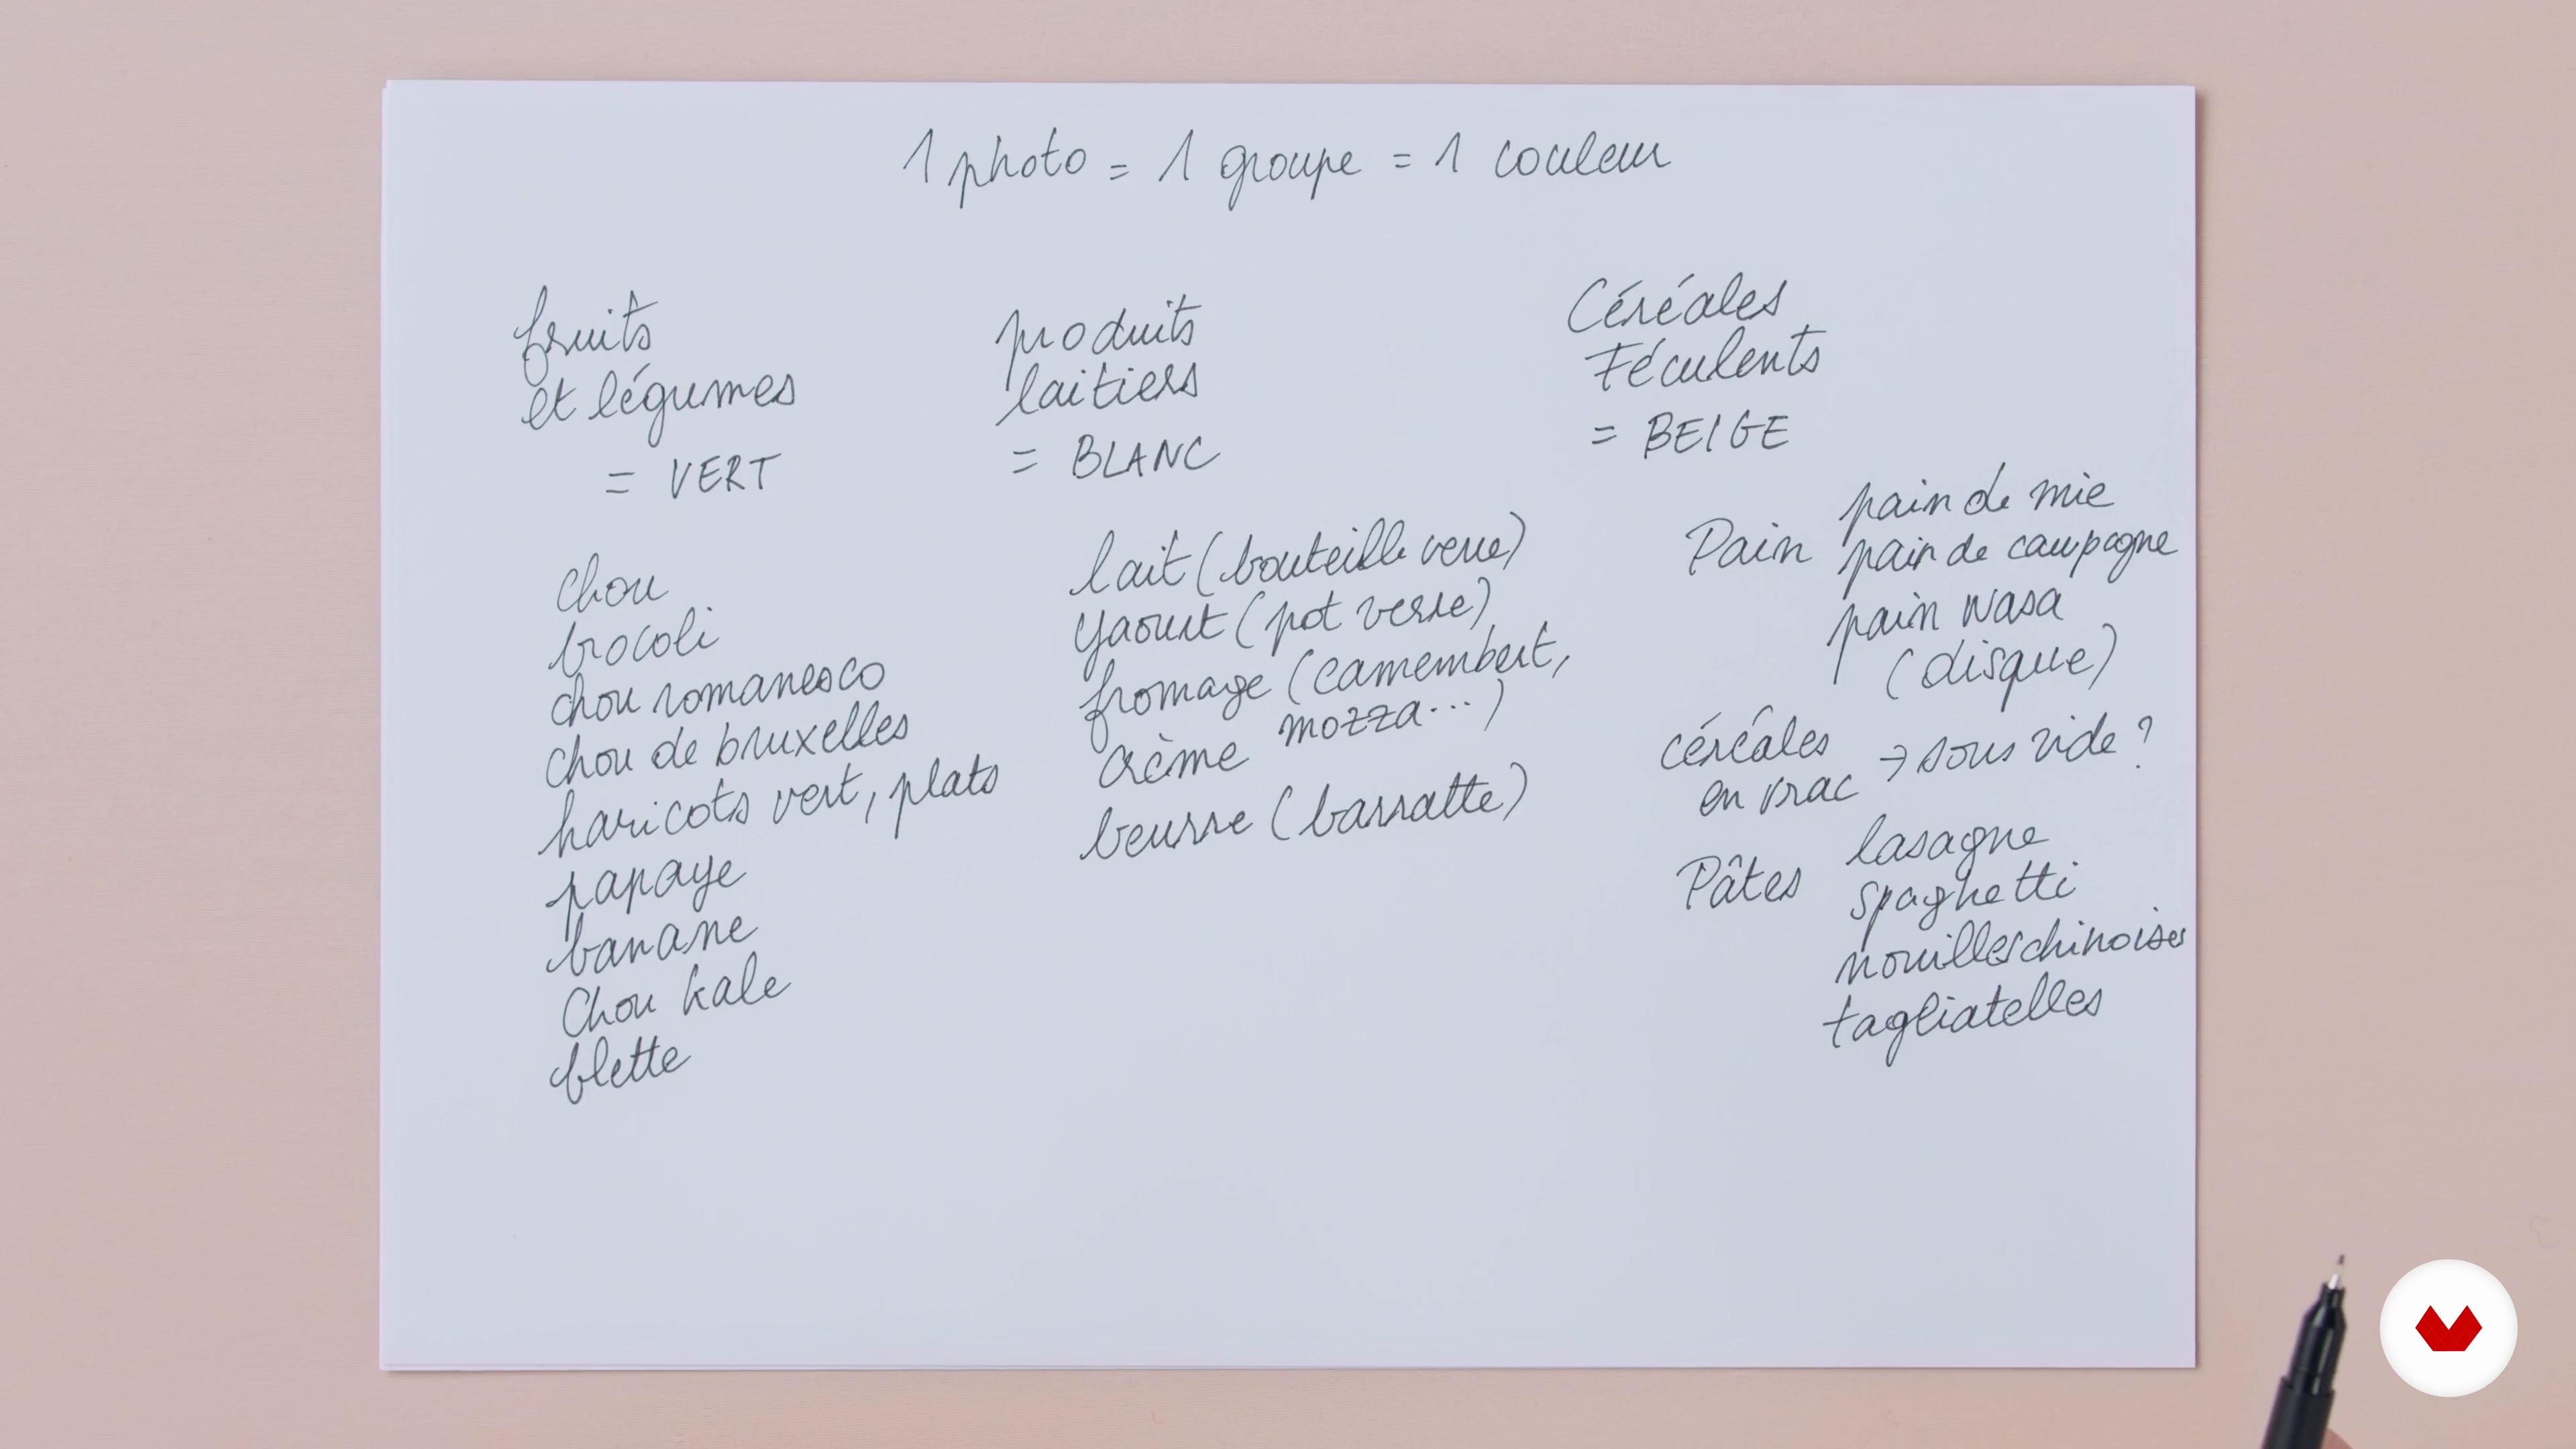 1 photo = 1 groupe = 1 couleur
fruits
et légumes
= VERT
chou
brocoli
chou romanesco
chou de bruxelles
haricots vert, plats
papaye
banane
Chou kale
blette
produits
laitiers
= BLANC
lait (bouteille verre)
yaourt (pot verre)
fromage (camembert,
mozza...)
crème
beurre (barratte)
Céréales
Féculents
= BEIGE
pain de mie
Pain pain de campagne
pain wasa
(disque)
céréales → sous vide ?
en vrac
lasagne
Pâtes spaghetti
nouilles chinoises
tagliatelles